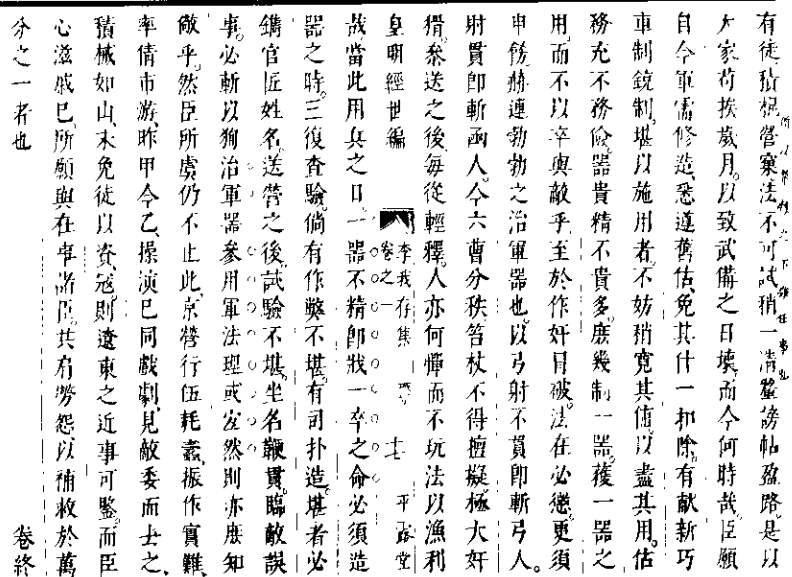 有徒積棍營窠法不可試稍一清釐謗帖盈路是以
大家苟挨歲月以致武備之日壞而今何時哉臣願
自今軍需修造悉遵舊估免其什一扣除有獻新巧
車制銃制堪以施用者不妨稍寬其值以盡其用估
務充不務儉器貴精不貴多庶幾制一器獲一器之
用而不以卒與敵乎至於作奸冒破法在必懲更須
申飭赫連勃勃之治軍器也以弓射不貫即斬弓人
射貫即斬函人今六曹分秩笞杖不得擅擬極大奸
猾參送之後每從輕釋人亦何憚而不玩法以漁利
皇明經世編
李我存集
卷之一
平露堂
哉當此用兵之日一器不精即戕一卒之命必須造
器之時三復查驗倘有作弊不堪有司扑造堪者必
鐫官匠姓名送營之後試驗不堪坐名鞭貫臨敵誤
事必斬以狥治軍器參用軍法理或宜然則亦應知
敵乎然臣所虞仍不止此京營行伍耗蠹振作實難
率倩市游昨甲今乙操演已同戲劇見敵委而去之
積械如山未免徒以資寇則遼東之近事可鑒而臣
心滋戚已所願與在事諸臣共肩勞怨以補救於萬
分之一者也
卷終